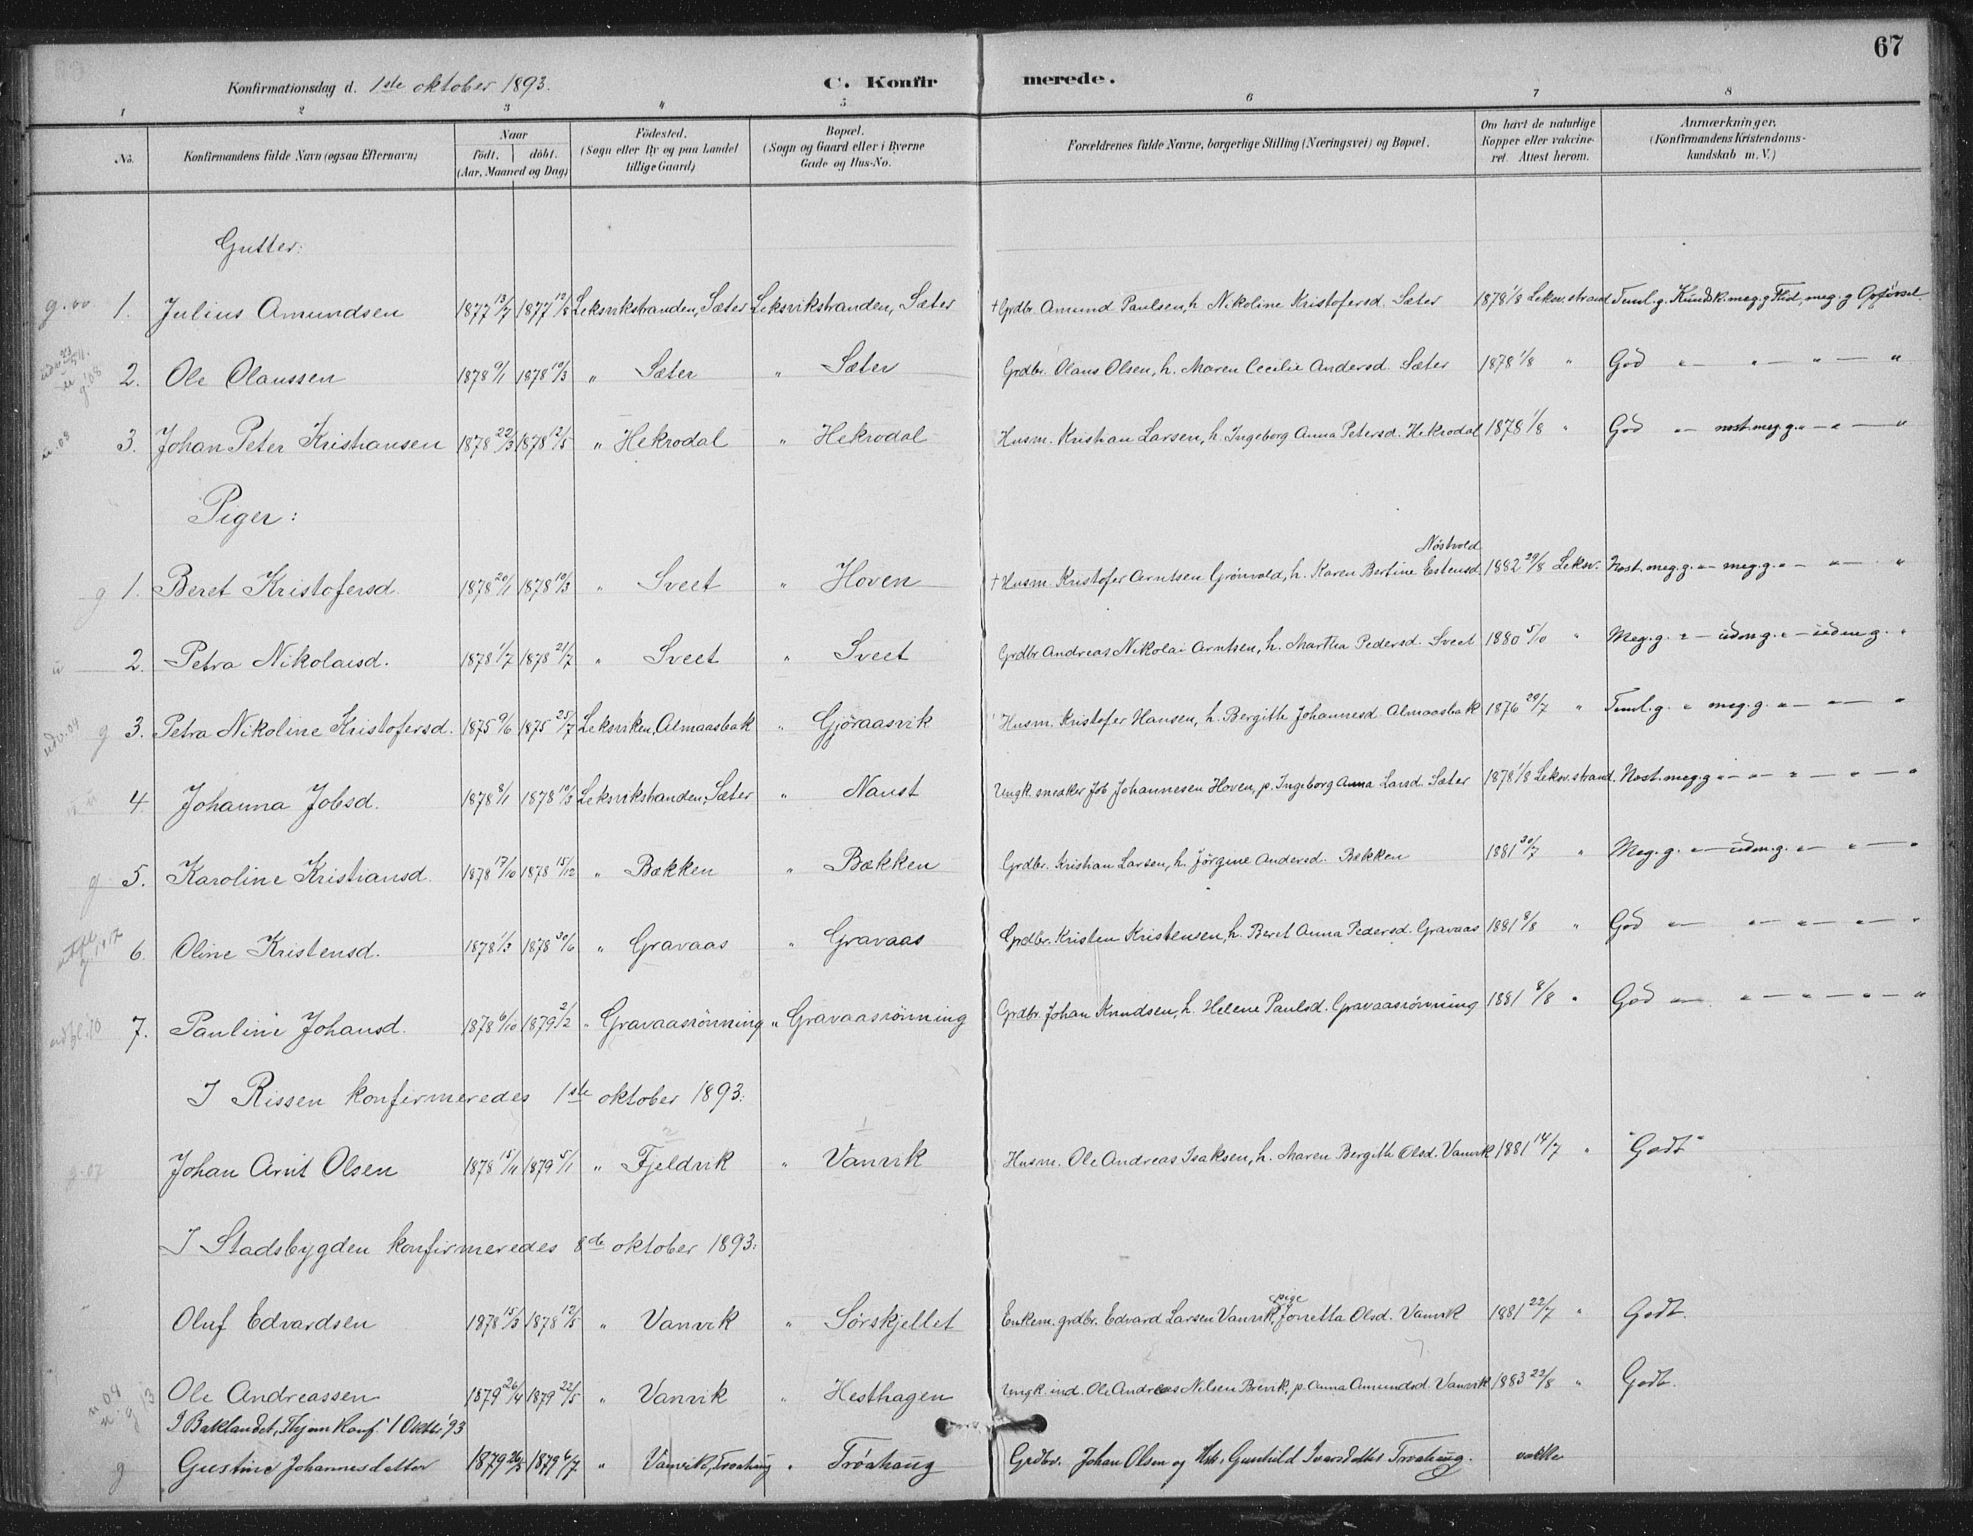 67
Konfirmationsdag d. 1ste oktober 1893. C. Konfirmerede.
1 2 3 4 5 6 7 8
No. Konfirmandens fulde Navn (ogsaa Efternavn) Naar født. døbt. (Aar, Maaned og Dag) Födested. (Sogn eller By og paa Landet tillige Gaard) Bopæl. (Sogn og Gaard eller i Byerne Gade og Hus-No. Forældrenes fulde Navne, borgerlige Stilling (Næringsvei) og Bopæl. Om havt de naturlige Kopper eller vakcineret. Attest herom. Anmærkninger. (Konfirmandens Kristendomskundskab m.V.)
Gutter:
1. Julius Amundsen 1877 13/7 1877 12/8 Leksvikstranden, Sæter Leksvikstranden, Sæter + Grdbr. Amund Paulsen, h. Nikoline Kristofersd. Sæter 1878 1/8 Leksv. strand Teml. g. Kundsk. meg. g Flid, meg. g Opførsel
2. Ole Olaussen 1878 9/1 1878 10/3 " Sæter " Sæter Grdbr. Olaus Olsen, h. Maren Cecilie Andersd. Sæter 1878 1/8 " God " — " — " — "
3. Johan Peter Kristiansen 1878 22/3 1878 12/5 " Hekrodal " Hekrodal Husm. Kristian Larsen, h. Ingeborg Anna Petersd. Hekrodal 1878 1/8 " God " — nost. meg. g. " — " — "
Piger:
Nöstvold
g 1. Beret Kristofersd. 1878 20/1 1878 10/3 " Sveet " Hoven + Husm. Kristofer Arntsen Grönvold, h. Karen Bertine Estensd. 1882 29/8 Leksv. Nost. meg. g. " — meg. g. " — " — "
2. Petra Nikolaisd. 1878 1/7 1878 21/7 " Sveet " Sveet Grdbr Andreas Nikolai Arntsen, h. Martha Pedersd. Sveet 1880 5/10 " Meg. g. " — udm. g. " — udm. g. "
g 3. Petra Nikoline Kristofersd. 1875 9/6 1875 25/7 Leksviken, Almaasbak " Gjöraasvik Husm. Kristofer Hansen, h. Bergith Johannesd. Almaasbak 1876 29/7 " Teml. g. " meg. g. " — " — "
4. Johanna Jobsd. 1878 8/1 1878 10/3 Leksvikstranden, Sæter " Naust Ungk. sneaker Job Johannesen Hoven, p. Ingeborg Anna Larsd. Sæter 1878 1/8 Leksv. strand. Nost. meg. g " — " — " — " — "
g 5. Karoline Kristiansd. 1878 17/10 1878 15/12 " Bækken " Bækken Grdbr. Kristian Larsen, h. Jörgine Andersd. Bækken 1881 30/7 " Meg. g. " — udm. g. " — " — "
6. Oline Kristensd. 1878 1/3 1878 30/6 " Gravaas " Gravaas Grdbr. Kristen Kristensen, h. Beret Anna Pedersd. Gravaas 1881 8/8 " God " — " — " — " — "
7. Pauline Johansd. 1878 6/10 1879 2/2 " Gravaasrönning " Gravaasrönning Grdbr. Johan Knudsen, h. Helene Paulsd. Gravaasrönning 1881 8/8 " God " — " — " — " — "
I Rissen konfirmeredes 1ste oktober 1893:
Johan Arnt Olsen 1878 15/11 1879 5/1 " Fjeldvik " Vanvik Husm. Ole Andreas Isaksen, h. Maren Bergith Olsd. Vanvik 1881 14/7 " "Godt"
I Stadsbygden konfirmeredes 8de oktober 1893:
Oluf Edvardsen 1878 15/3 1878 12/5 " Vanvik " Sörskjellet Enkem. grdbr. Edvard Larsen Vanvik, pige Jonetta Olsd. Vanvik 1881 22/7 " Godt.
Ole Andreassen 1879 26/4 1879 22/5 " Vanvik " Hesthagen Ungk. ind. Ole Andreas Nilsen Brevik, p. Anna Amundsd. Vanvik 1883 23/8 " Godt.
I Baklandet, Thjem Konf. 1 Oktbr 93
g Gustine Johannesdatter 1879 26/5 1879 6/7 " Vanvik, Troahaug " Tröahaug Grdbr. Johan Olsen og Hst. Gunhild Ivarsdatter Troahaug.